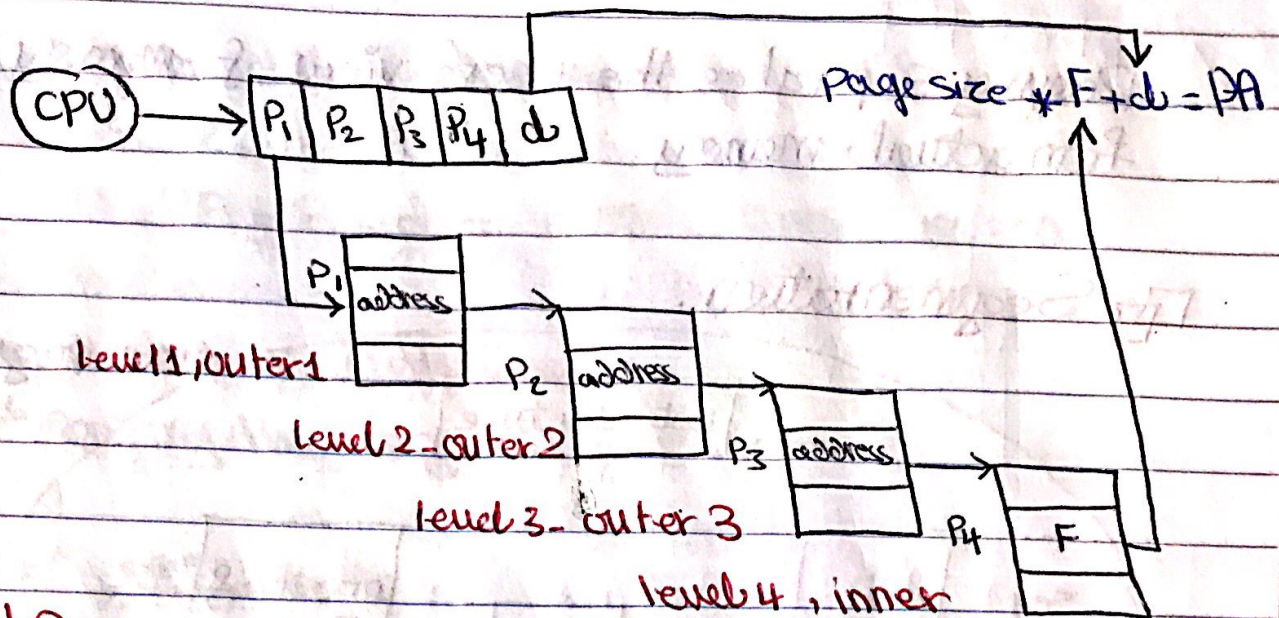 CPU
P1 P2 P3 P4 d
Page size * F + d = PA
P1 address
level 1, outer 1
P2 address
level 2 - outer 2
P3 address
level 3 - outer 3
P4 F
level 4, inner